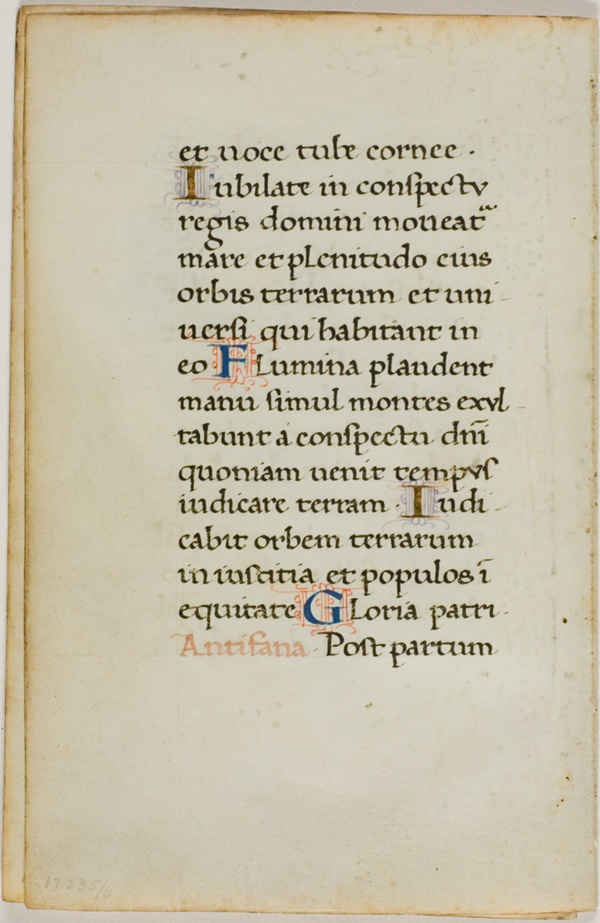 et uoce tube cornee ·
Iubilate in conspectv
regis domini moueat
mare et plenitudo eius
orbis terrarum et uni
uersi qui habitant in
eo Flumina plaudent
manu simul montes exvl
tabunt a conspectu dn̄i
quoniam uenit tempvs
iudicare terram · Iudi
cabit orbem terrarum
in iusticia et populos ī
equitate Gloria patri
Antifana · Post partum
17.235/4